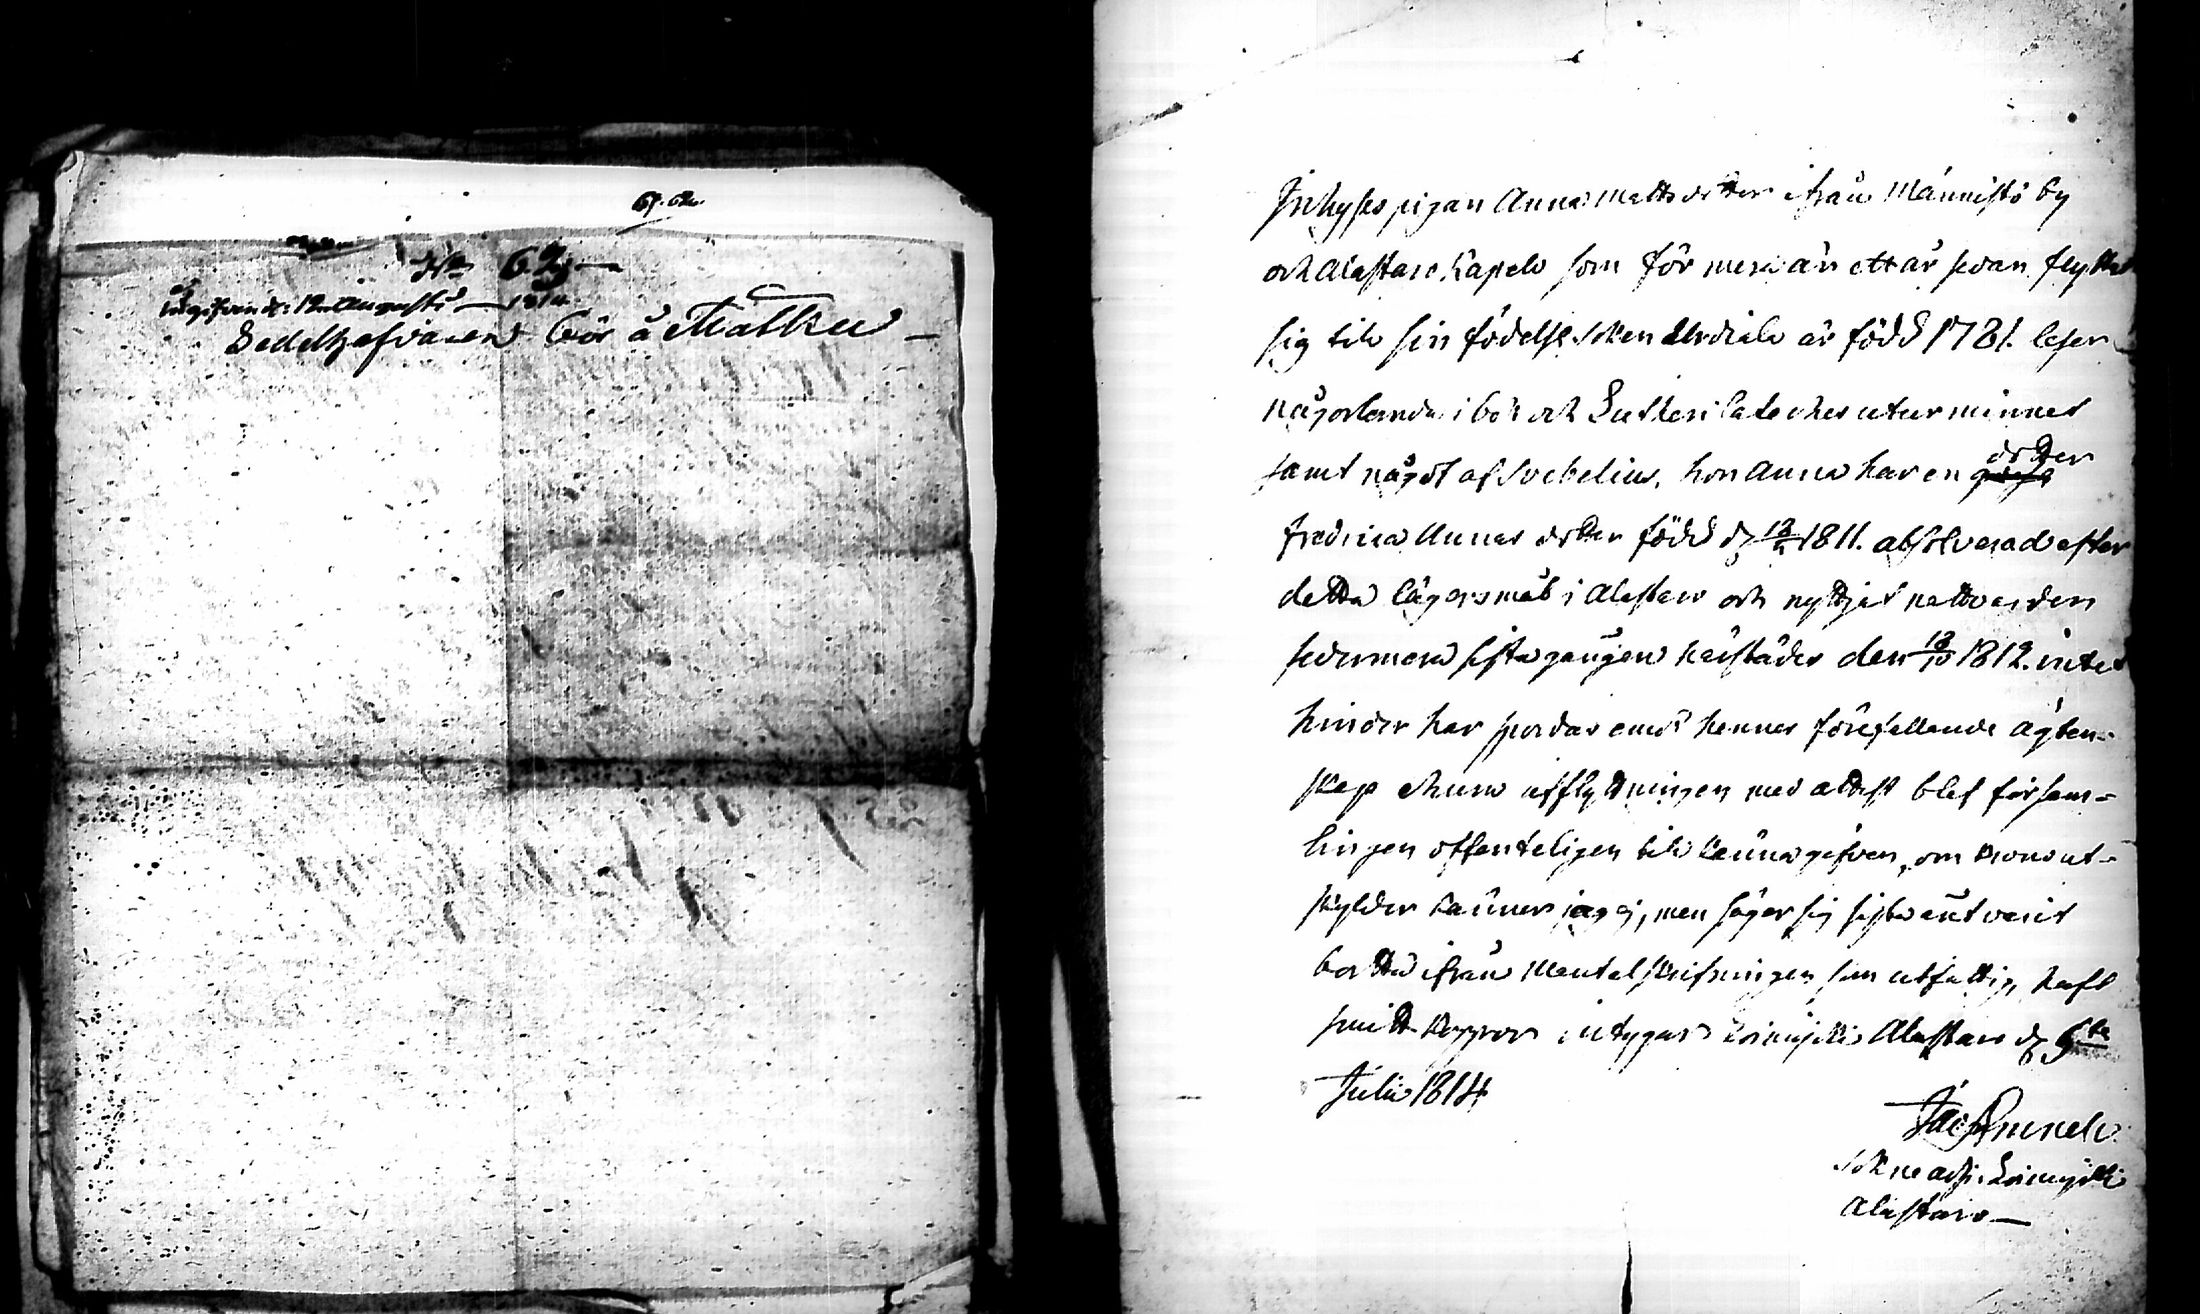 61. 62.
No 62
ingifven d: 12 Augusti 1814
Sedelhafvaren bör å Matku
Inhyses pigan Anna Matts dotter ifrån Männistö by
och Alastaro Kapell som för mera än ett år sedan flyttat
sig till sin födelse soken Urdiala är född 1781. läser
någorlunda i bok och Lutheri Cateches utur minnet
samt något af Svebelius, hon Anna har en dotter
fredrica Annas dotter född d 12/5 1811. absolverad efter
detta lägersmål i Alastaro och nyttjat nattvarden
sedermera sista gången härstädes den 18/10 1812. intet
hinder har spordas emot hennes förefallande ägten-
skap ehuru afflyttningen med attest blef försam-
lingen offenteligen till känna gifven, om krono ut-
skylder känner jag ej, men säger sig sistl. varit
borta ifrån Mantalskrifningen som utfattig, haft
smitt koppor intygar Loimijoki Alastaro d 5te
Julii 1814
Jac
Sokne adj. i Loimijoki
Alastaro